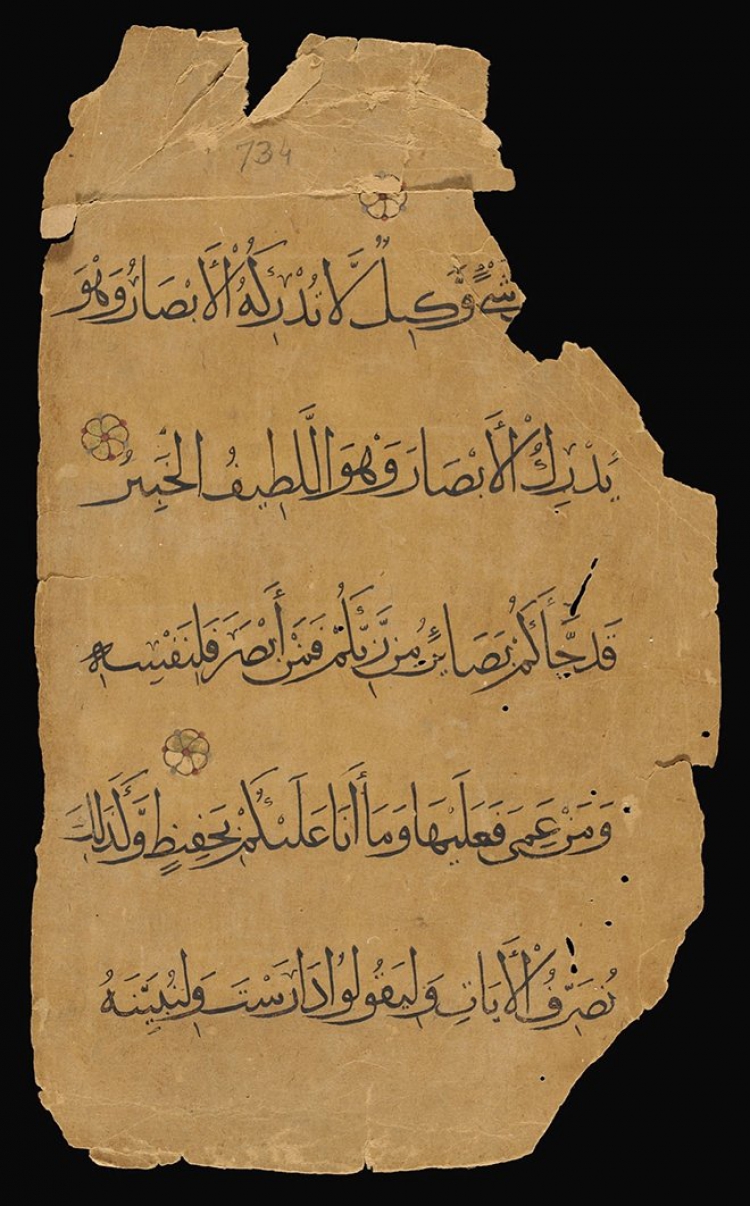 734
شَيْءٍ وَّكِيلٌ لَّا تُدْرِكُهُ الْأَبْصَارُ وَهْوَ
يُدْرِكُ الْأَبْصَارَ وَهْوَ اللَّطِيفُ الْخَبِيرُ
قَدْ جَّاءَكُمْ بَصَائِرُ مِن رَّبِّكُمْ فَمَنْ أَبْصَرَ فَلِنَفْسِهِ
وَمَنْ عَمِيَ فَعَلَيْهَا وَمَا أَنَا عَلَيْكُمْ بِحَفِيظٍ وَّكَذَلِكَ
نُصَرِّفُ الْأَيَاتِ وَلِيَقُولُوا دَارَسْتَ وَلِنُبَيِّنَهُ